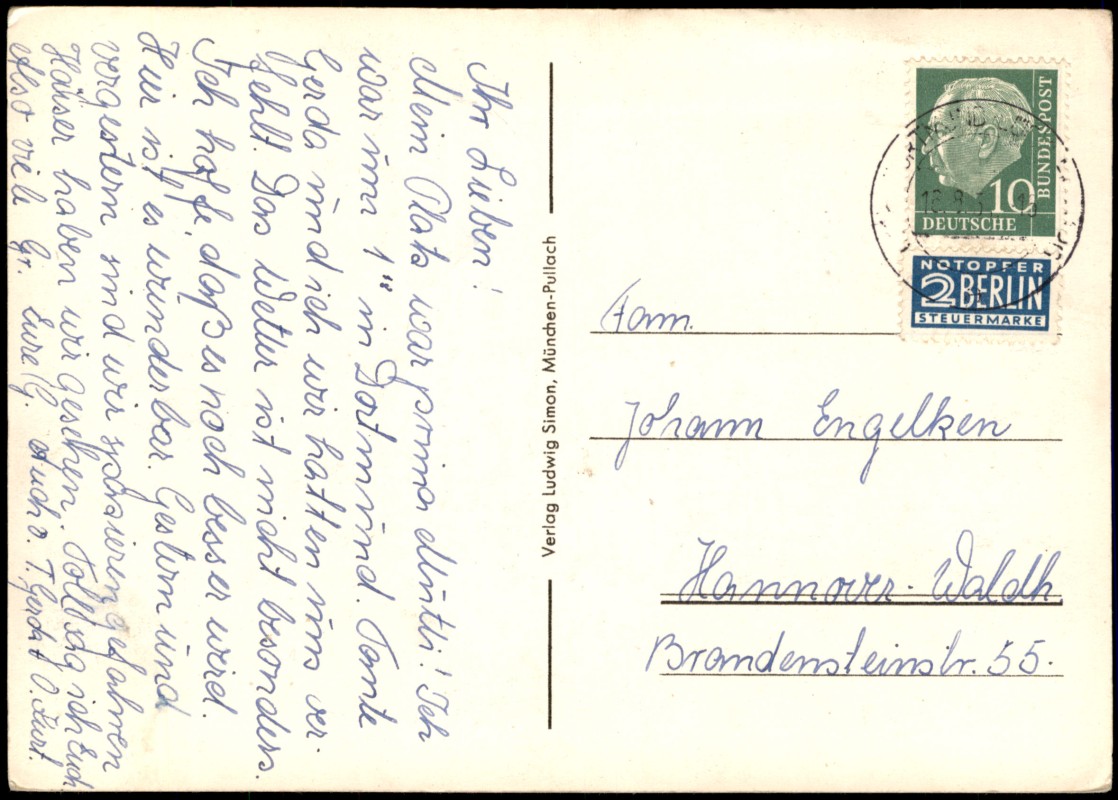 Ihr Lieben!
Mein Platz war prima Mutti! Ich
war um 1°° in Dortmund. Tante
Gerda und ich wir hatten uns ver-
fehlt. Das Wetter ist nicht besonders.
Ich hoffe, daß es noch besser wird.
Hier ist es wunderbar. Gestern und
vorgestern sind wir spazierengefahren
Häuser haben wir gesehen. Toll sag ich Euch
Also viele Gr. Eure G. Auch v. T. Gerda + O. Kurt.
Verlag Ludwig Simon, München-Pullach
DEUTSCHE BUNDESPOST
10
NOTOPFER
2 BERLIN
STEUERMARKE
Fam.
Johann Engelken
Hannover-Waldh.
Brandensteinstr. 55.